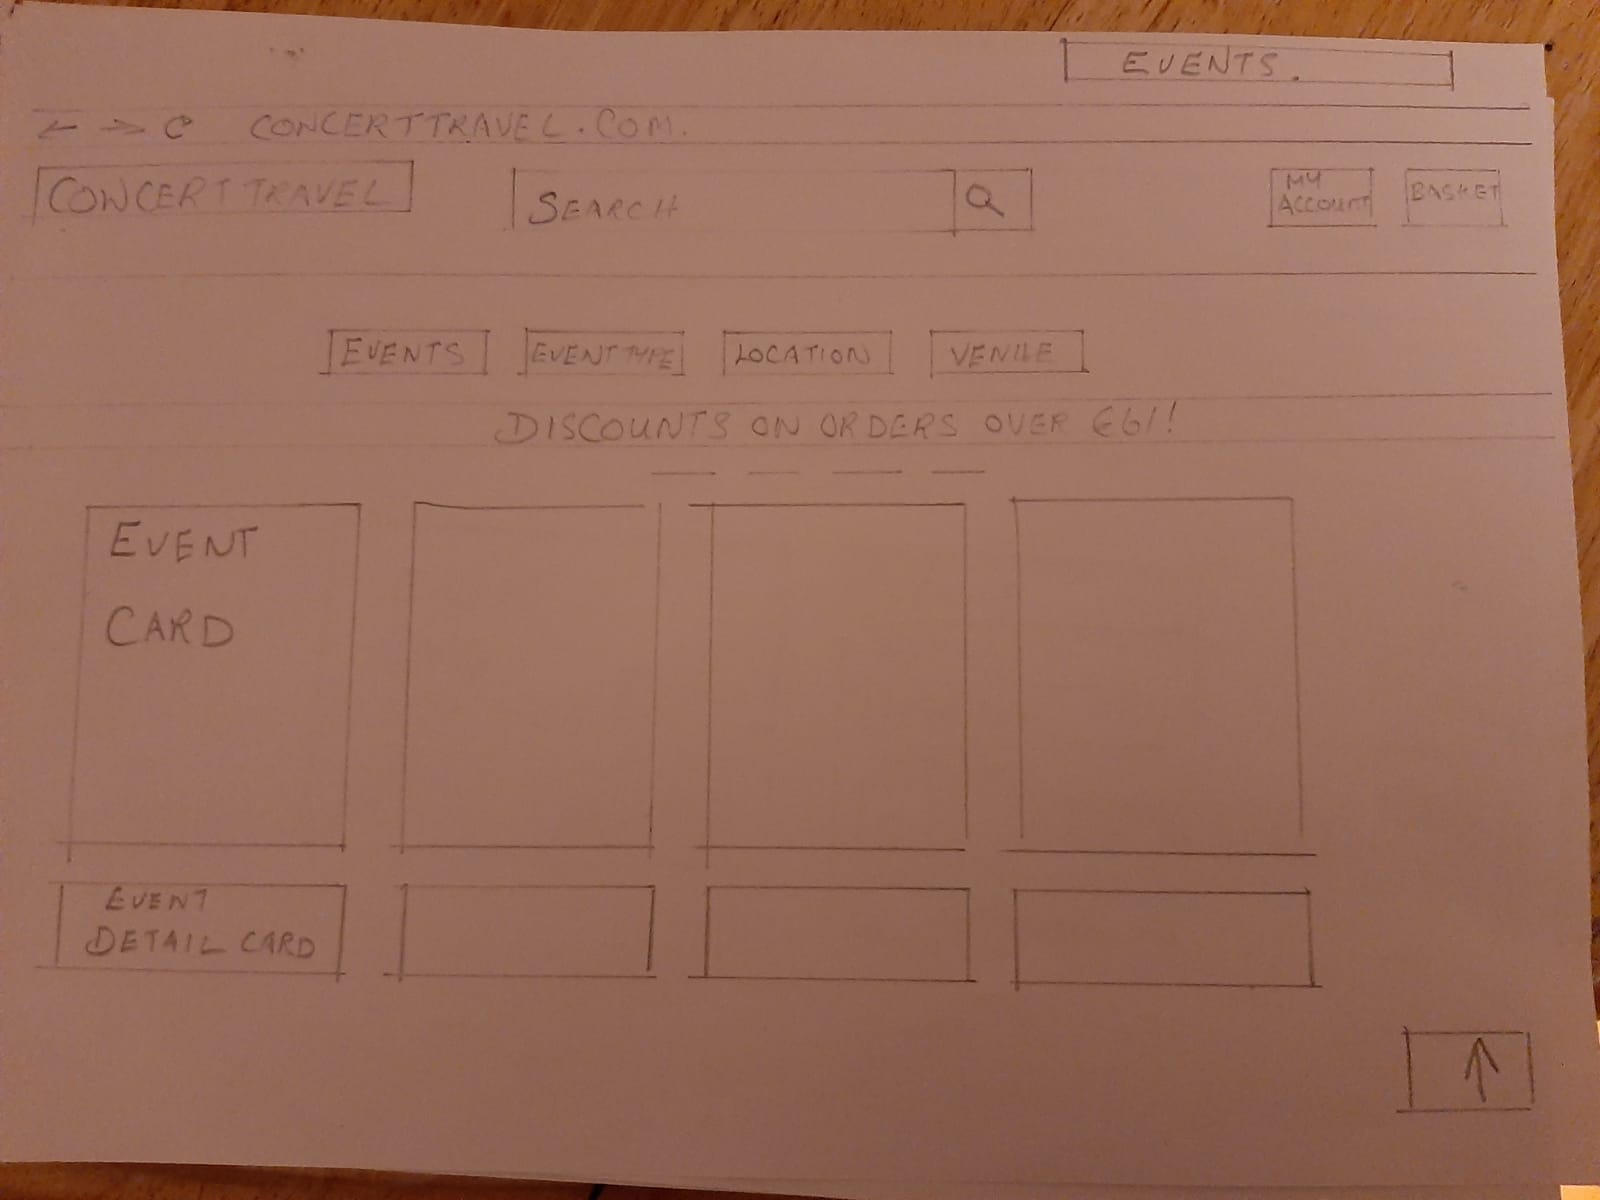 EVENTS.
CONCERTTRAVEL.COM.
CONCERT TRAVEL
SEARCH
MY
ACCOUNT
BASKET
EVENTS
EVENT TYPE
LOCATION
VENUE
DISCOUNTS ON ORDERS OVER €61!
EVENT
CARD
EVENT
DETAIL CARD